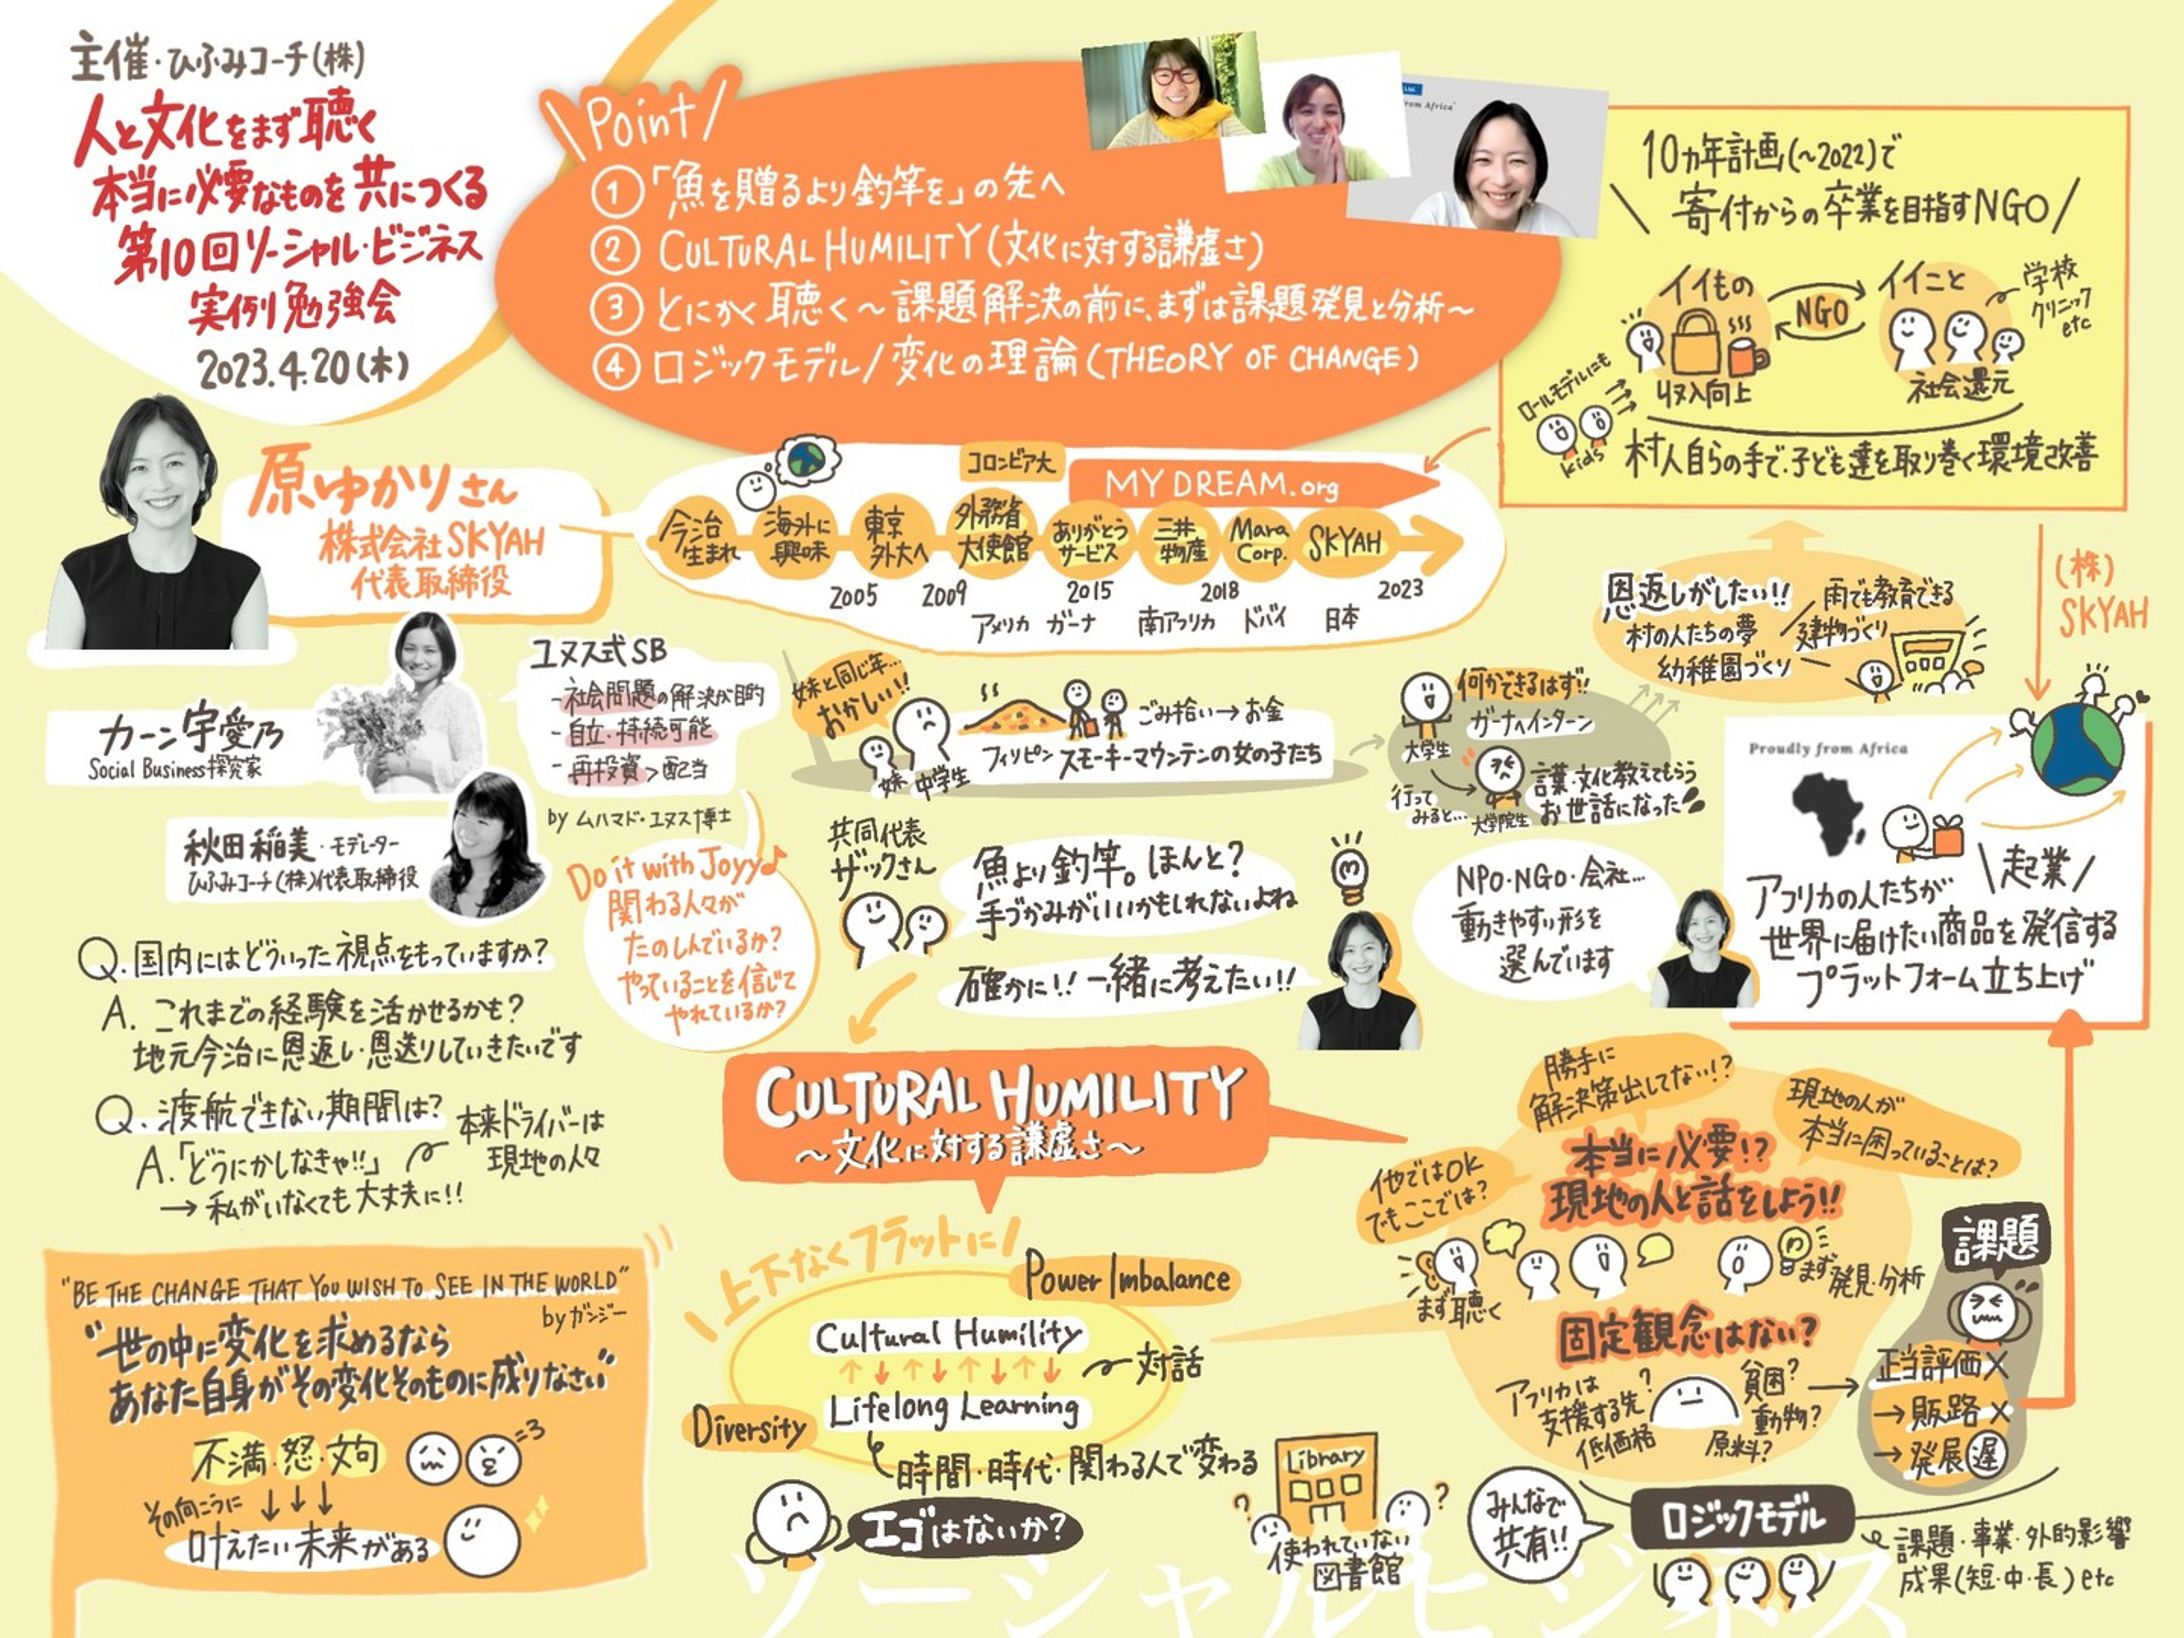 主催・ひふみコーチ(株)
人と文化をまず聴く
本当に必要なものを共につくる
第10回ソーシャル・ビジネス
実例勉強会
2023.4.20(木)
\Point/
①「魚を贈るより釣竿を」の先へ
② CULTURAL HUMILITY(文化に対する謙虚さ)
③ とにかく聴く～課題解決の前に、まずは課題発見と分析～
④ ロジックモデル/変化の理論(THEORY OF CHANGE)
from Africa
10ヵ年計画(~2022)で
\寄付からの卒業を目指すNGO/
イイもの
NGO
イイこと
学校
クリニック
etc
収入向上
社会還元
ロールモデルにも
kids
村人自らの手で、子ども達を取り巻く環境改善
原ゆかりさん
株式会社SKYAH
代表取締役
コロンビア大
MY DREAM.org
今治
生まれ
海外に
興味
東京
外大へ
外務省
大使館
ありがとう
サービス
三井
物産
Mara
Corp.
SKYAH
2005
2009
2015
2018
2023
アメリカ
ガーナ
南アフリカ
ドバイ
日本
(株)
SKYAH
恩返しがしたい!!
村の人たちの夢
幼稚園づくり
雨でも教育できる
建物づくり
カーン宇愛乃
Social Business探究家
ユヌス式SB
-社会問題の解決が目的
-自立・持続可能
-再投資>配当
by ムハマド・ユヌス博士
秋田稲美・モデレーター
ひふみコーチ(株)代表取締役
Do it with Joyy♪
関わる人々が
たのしんでいるか?
やっていることを信じて
やれているか?
妹と同じ年...
おかしい!!
妹
中学生
ごみ拾い→お金
フィリピン スモーキーマウンテンの女の子たち
何かできるはず!!
ガーナへインターン
大学生
行って
みると...
大学院生
言葉・文化教えてもらう
お世話になった
共同代表
ザックさん
魚より釣竿。ほんと?
手づかみがいいかもしれないよね
確かに!! 一緒に考えたい!!
NPO・NGO・会社...
動きやすい形を
選んでいます
Proudly from Africa
\起業/
アフリカの人たちが
世界に届けたい商品を発信する
プラットフォーム立ち上げ
Q.国内にはどういった視点をもっていますか?
A.これまでの経験を活かせるかも?
地元今治に恩返し・恩送りしていきたいです
Q.渡航できない期間は?
A.「どうにかしなきゃ!!」
→私がいなくても大丈夫に!!
本来ドライバーは
現地の人々
CULTURAL HUMILITY
～文化に対する謙虚さ～
\上下なくフラットに/
Power Imbalance
Cultural Humility
↑↓↑↓↑↓↑↓
対話
Lifelong Learning
Diversity
時間・時代・関わる人で変わる
エゴはないか?
Library
?
?
使われていない
図書館
勝手に
解決策出してない!?
現地の人が
本当に困っていることは?
他ではOK
でもここでは?
本当に必要!?
現地の人と話をしよう!!
まず聴く
まず発見・分析
固定観念はない?
アフリカは
支援する先?
低価格
貧困?
動物?
原料?
課題
正当評価×
→販路×
→発展遅
みんなで
共有!!
ロジックモデル
課題・事業・外的影響
成果(短・中・長)etc
"BE THE CHANGE THAT YOU WISH TO SEE IN THE WORLD"
by ガンジー
"世の中に変化を求めるなら
あなた自身がその変化そのものに成りなさい"
不満・怒・文句
その向こうに ↓↓↓
叶えたい未来がある
ソーシャルビジネス